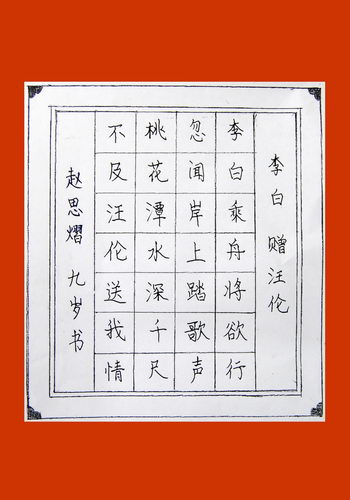 李白 赠汪伦
李白乘舟将欲行
忽闻岸上踏歌声
桃花潭水深千尺
不及汪伦送我情
赵思熠 九岁书